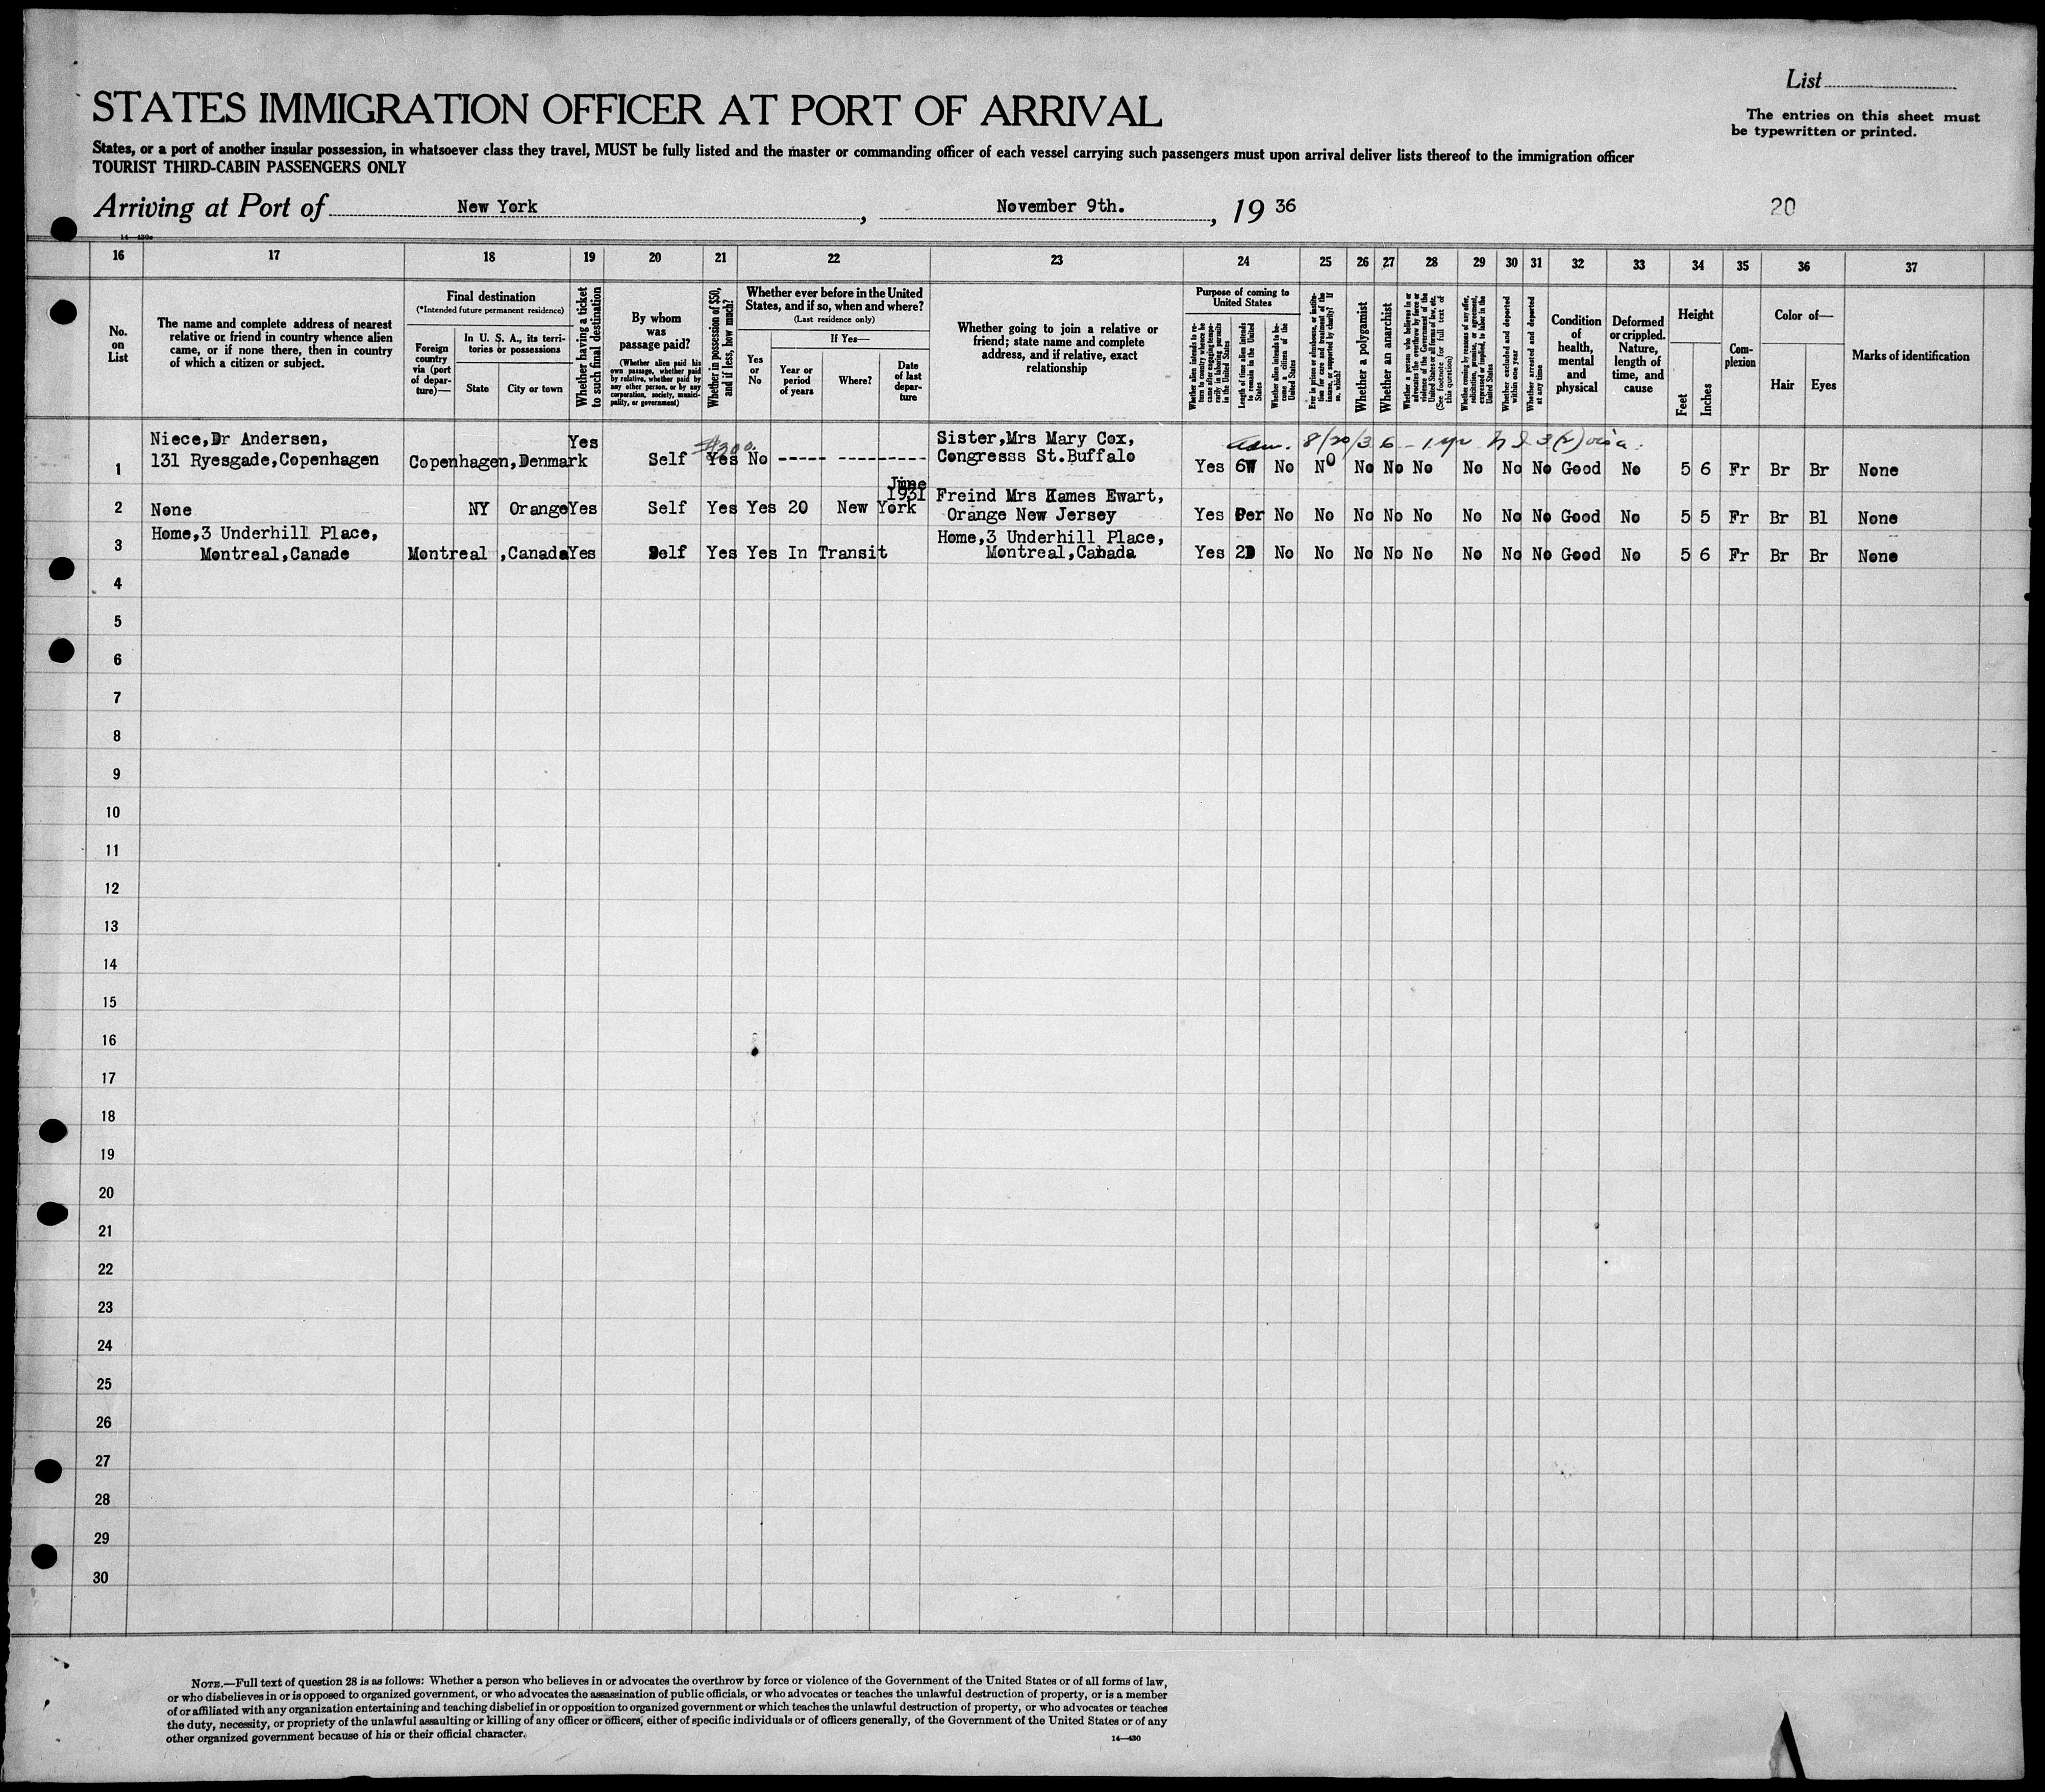 List
STATES IMMIGRATION OFFICER AT PORT OF ARRIVAL
The entries on this sheet must
be typewritten or printed.
States, or a port of another insular possession, in whatsoever class they travel, MUST be fully listed and the master or commanding officer of each vessel carrying such passengers must upon arrival deliver lists thereof to the immigration officer
TOURIST THIRD-CABIN PASSENGERS ONLY
Arriving at Port of New York, November 9th., 19 36
20
14—430c
16 17 18 19 20 21 22 23 24 25 26 27 28 29 30 31 32 33 34 35 36 37
No.
on
List
The name and complete address of nearest
relative or friend in country whence alien
came, or if none there, then in country
of which a citizen or subject.
Final destination
(*Intended future permanent residence)
Foreign
country
via (port
of depar-
ture)—
In U. S. A., its terri-
tories or possessions
State City or town
Whether having a ticket
to such final destination
By whom
was
passage paid?
(Whether alien paid his
own passage, whether paid
by relative, whether paid by
any other person, or by any
corporation, society, munici-
pality, or government)
Whether in possession of $50,
and if less, how much?
Whether ever before in the United
States, and if so, when and where?
(Last residence only)
Yes
or
No
If Yes—
Year or
period
of years
Where?
Date
of last
depar-
ture
Whether going to join a relative or
friend; state name and complete
address, and if relative, exact
relationship
Purpose of coming to
United States
Whether alien intends to re-
turn to country whence he
came after engaging tempo-
rarily in laboring pursuits
in the United States
Length of time alien intends
to remain in the United
States
Whether alien intends to be-
come a citizen of the
United States
Ever in prison or almshouse, or institu-
tion for care and treatment of the
insane, or supported by charity? If
so, which?
Whether a polygamist
Whether an anarchist
Whether a person who believes in or
advocates the overthrow by force or
violence of the Government of the
United States or all forms of law, etc.
(See footnote for full text of
this question)
Whether coming by reasons of any offer,
solicitation, promise, or agreement,
expressed or implied, to labor in the
United States
Whether excluded and deported
within one year
Whether arrested and deported
at any time
Condition
of
health,
mental
and
physical
Deformed
or crippled.
Nature,
length of
time, and
cause
Height
Feet
Inches
Com-
plexion
Color of—
Hair Eyes
Marks of identification
Niece,Dr Andersen, Yes $300. Sister,Mrs Mary Cox, 8/20/36 – 1 yr
1 131 Ryesgade,Copenhagen Copenhagen,Denmark Self Yes No ----- --------- Congresss St.Buffalo Yes 6W No No No No No No No No Good No 5 6 Fr Br Br None
June
1931
2 None NY Orange Yes Self Yes Yes 20 New York Freind Mrs Kames Ewart,
Orange New Jersey Yes Per No No No No No No No No Good No 5 5 Fr Br Bl None
3 Home,3 Underhill Place, Home,3 Underhill Place,
Montreal,Canade Montreal ,Canada Yes Self Yes Yes In Transit Montreal,Canada Yes 2D No No No No No No No No Good No 5 6 Fr Br Br None
4
5
6
7
8
9
10
11
12
13
14
15
16
17
18
19
20
21
22
23
24
25
26
27
28
29
30
NOTE.—Full text of question 28 is as follows: Whether a person who believes in or advocates the overthrow by force or violence of the Government of the United States or of all forms of law,
or who disbelieves in or is opposed to organized government, or who advocates the assassination of public officials, or who advocates or teaches the unlawful destruction of property, or is a member
of or affiliated with any organization entertaining and teaching disbelief in or opposition to organized government or which teaches the unlawful destruction of property, or who advocates or teaches
the duty, necessity, or propriety of the unlawful assaulting or killing of any officer or officers, either of specific individuals or of officers generally, of the Government of the United States or of any
other organized government because of his or their official character.
14—430